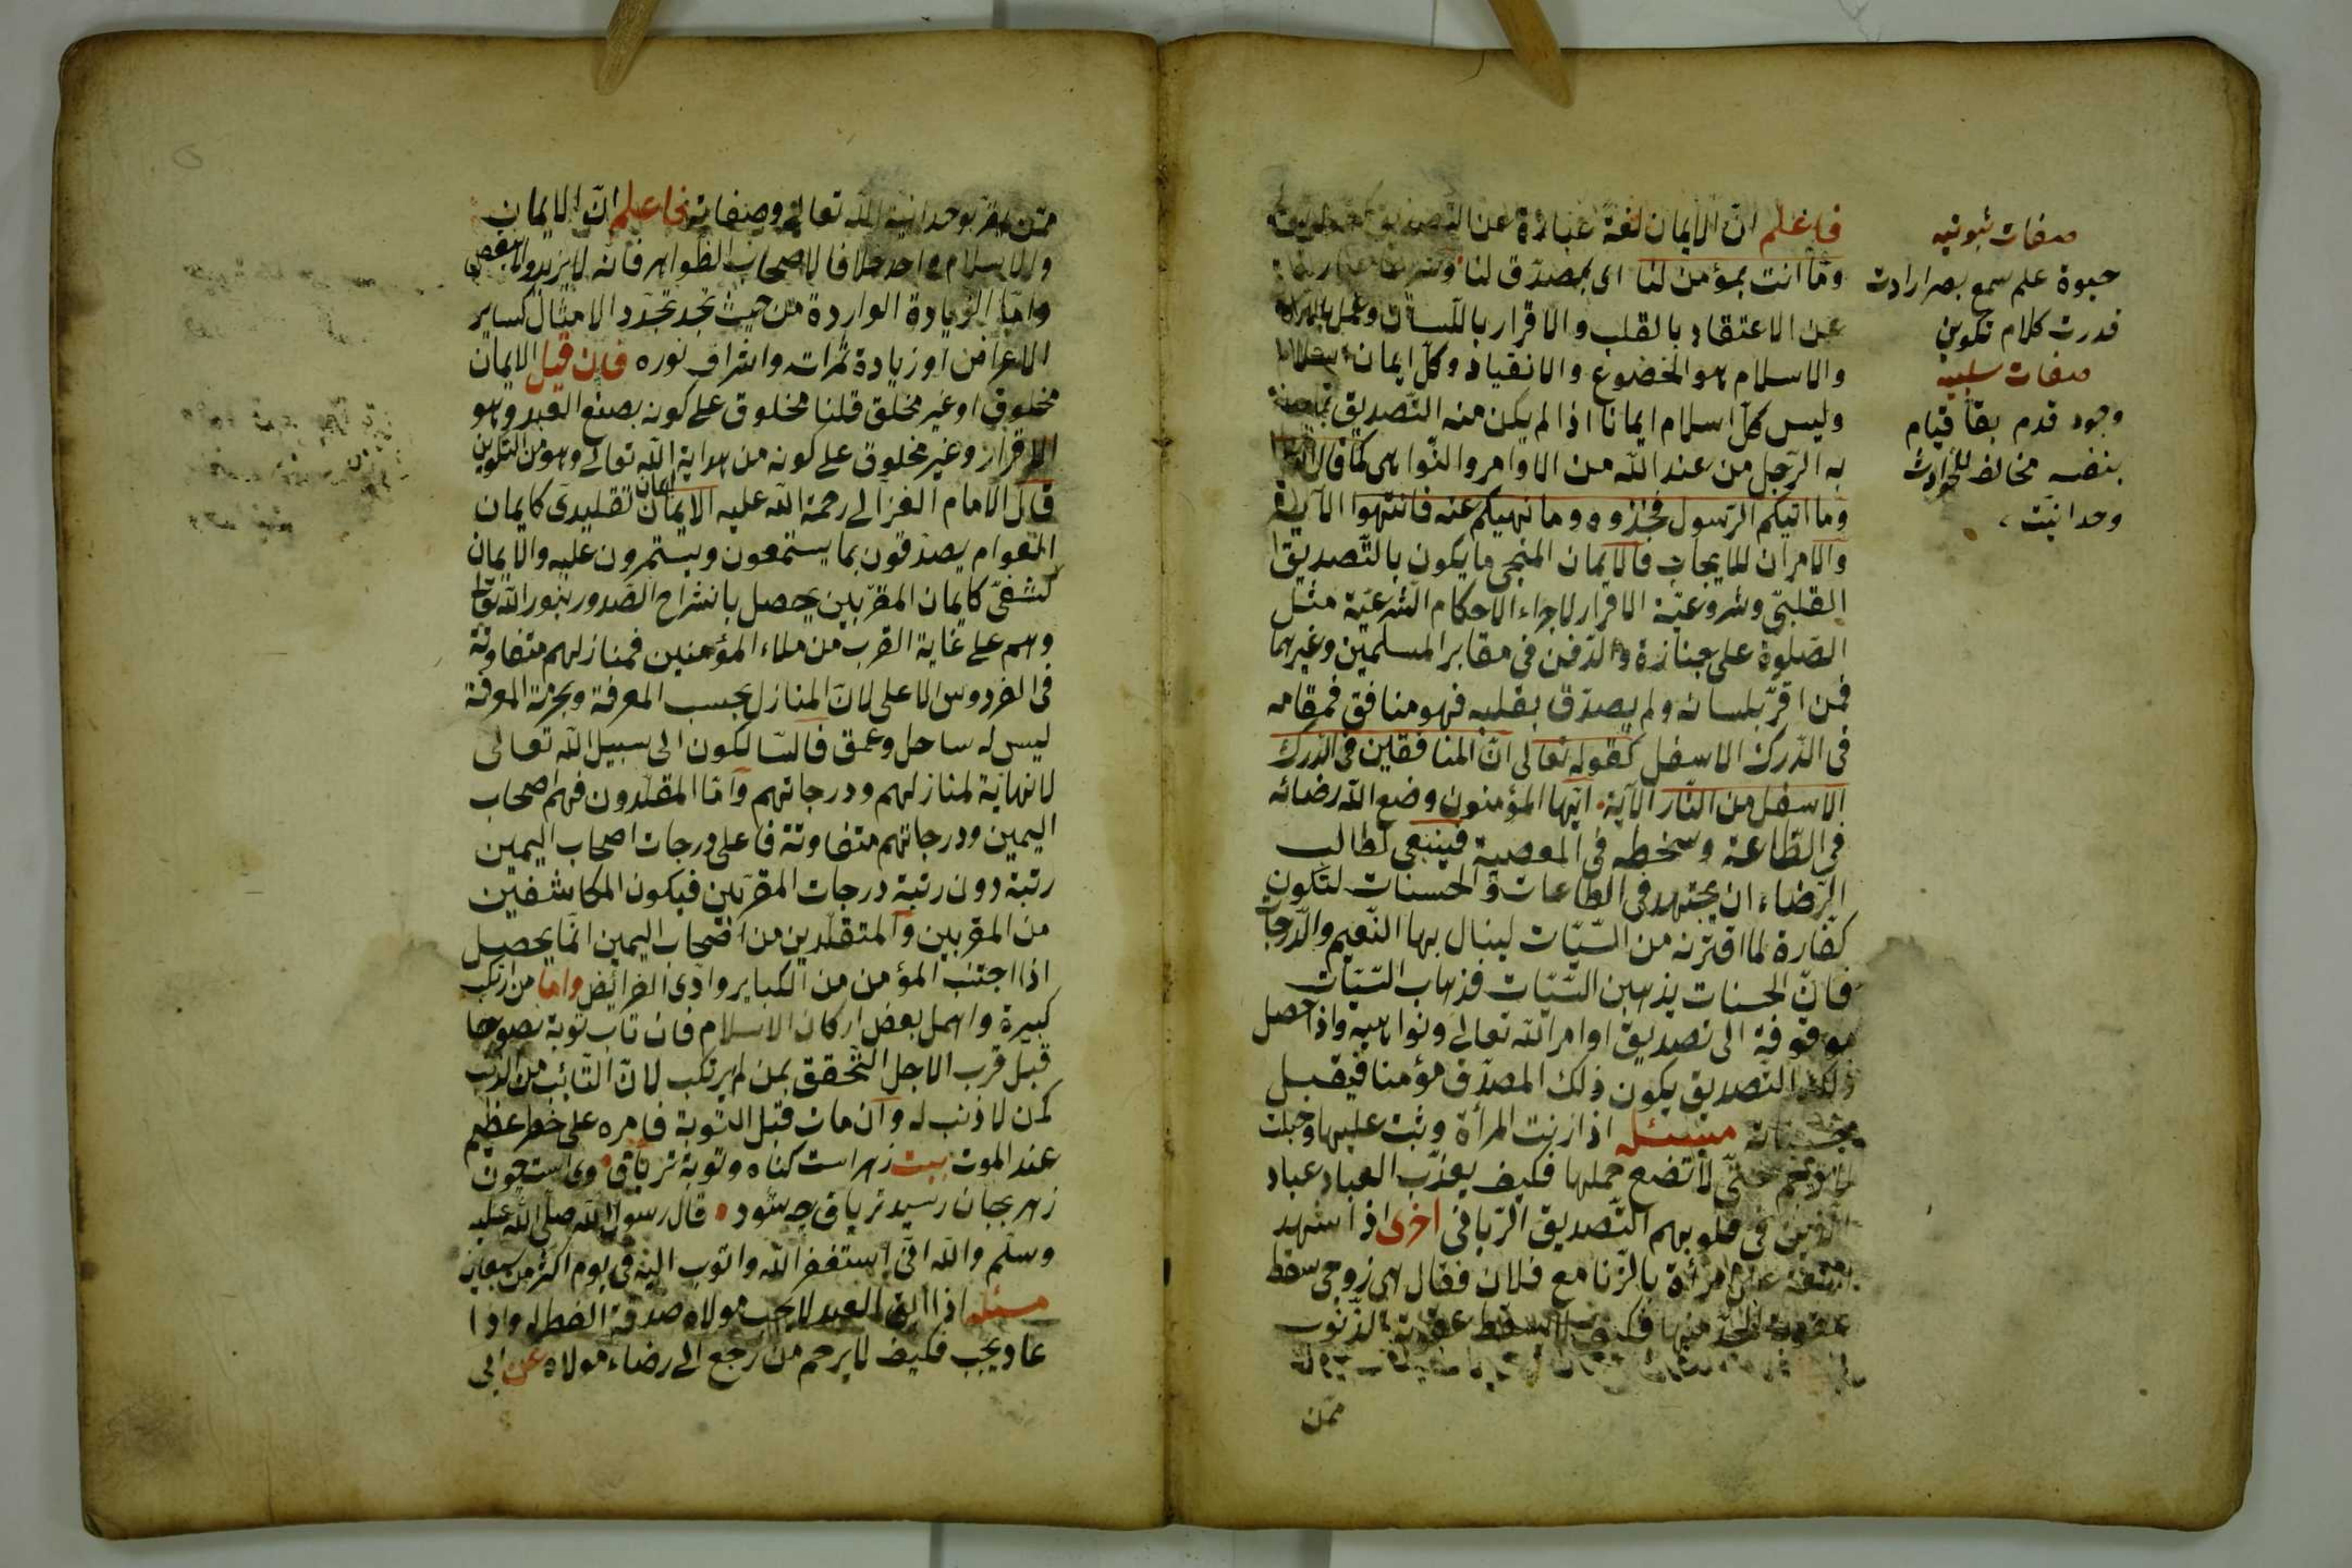 فاعلم انّ الايمان لغة عبارة عن التصديق
وما انت بمؤمن لنا اى بمصدّق لنا
عن الاعتقاد بالقلب والاقرار باللّسان وعمل
والاسلام هو الخضوع والانقياد وكلّ ايمان
وليس كلّ اسلام ايمانا اذا لم يكن منه التّصديق
به الرّجل من عند اللّه من الاوامر والنّواهى كما قال
وما اتيكم الرّسول فخذوه وما نهيكم عنه فانتهوا الآية
والامران للايجاب فالايمان المنجى ما يكون بالتّصديق
القلبىّ وشروعيّة الاقرار لاجراء الاحكام الشرعيّة مثل
الصّلوة على جنازة والدّفن فى مقابر المسلمين وغيرهما
فمن اقرّ بلسانه ولم يصدّق بقلبه فهو منافق فمقامه
فى الدّرك الاسفل كقوله تعالى انّ المنافقين فى الدّرك
الاسفل من النّار الآية ايّها المؤمنون وضع اللّه رضائه
فى الطّاعة وسخطه فى المعصية فينبغى لطالب
الرّضاء ان يجتهد فى الطاعات والحسنات لتكون
كفّارة لما اقترنه من السّيّات لينال بها النّعيم والدّرجات
فانّ الحسنات يذهبن السّيّات فذهاب السّيّات
موقوفة الى تصديق اوامر اللّه تعالى ونواهيه واذا حصل
ذلك التّصديق يكون ذلك المصدّق مؤمنا فيقبل
مسئله اذا زنت المرأة وثبت عليها وحبلت
حتّى لا تضع حملها فكيف يعذّب العباد عباد
الّذين فى قلوبهم التّصديق الرّبانى اخرى اذا شهد
امرأة بالزّنا مع فلان فقال هى زوجى سقط
عقوبة الحدّ منها فكيف لا يسقط عقوبة الذّنوب
ممّن
صفات ثبوتيه
حيوة علم سمع بصر ارادت
قدرت كلام تكوين
صفات سلبيه
وجود قدم بقا قيام
بنفسه مخالف للحوادث
وحدانيّت
ممّن اقرّ بوحدانيّة اللّه تعالى وصفاته فاعلم انّ الايمان
والاسلام واحد خلافا لاصحاب الظّواهر فانّه لا يزيد ولا ينقص
وامّا الزّيادة الواردة من حيث تجدّد الامثال كساير
الاعراض او زيادة ثمراته واشراق نوره فان قيل الايمان
مخلوق او غير مخلق قلنا مخلوق على كونه بصنع العبد وهو
الاقرار وغير مخلوق على كونه من هداية اللّه تعالى وهو من التكوين
قال الامام الغزالى رحمة اللّه عليه الايمان ايمان تقليدىّ كايمان
العوام يصدّقون بما يستمعون ويستمرون عليه والايمان
كشفىّ كايمان المقرّبين يحصل بانشراح الصّدور بنور اللّه تعالى
وهم على غاية القرب من ملاء المؤمنين فمنازلهم متفاوتة
فى الفردوس الاعلى لانّ المنازل بحسب المعرفة وبحر المعرفة
ليس له ساحل وعمق فالسّالكون الى سبيل اللّه تعالى
لا نهاية لمنازلهم ودرجاتهم وامّا المقلّدون فهم اصحاب
اليمين ودرجاتهم متفاوتة فاعلى درجات اصحاب اليمين
رتبة دون رتبة درجات المقرّبين فيكون المكاشفين
من المقربين والمتقلّدين من اصحاب اليمين انّما يحصل
اذا اجتنب المؤمن من الكباير وادّى الفرائض وامّا من ارتكب
كبيرة واهمل بعض اركان الاسلام فان تاب توبة نصوحا
قبل قرب الاجل التّحقق بمن لم يرتكب لانّ التّائب من الذّنب
كمن لا ذنب له وان مات قبل التّوبة فامره على خطر عظيم
عند الموت بيت زهر است كناه وتوبه ترياق وى است چون
زهر بجان رسيد ترياق چه سود قال رسول اللّه صلى اللّه عليه
وسلّم واللّه انّى استغفر اللّه واتوب اليه فى يوم اكثر من سبعين
مسئله اذا ابق العبد لا يجب مولاه صدقة الفطر له واذا
عاد يجب فكيف لا يرحم من رجع الى رضاء مولاه عن ابى